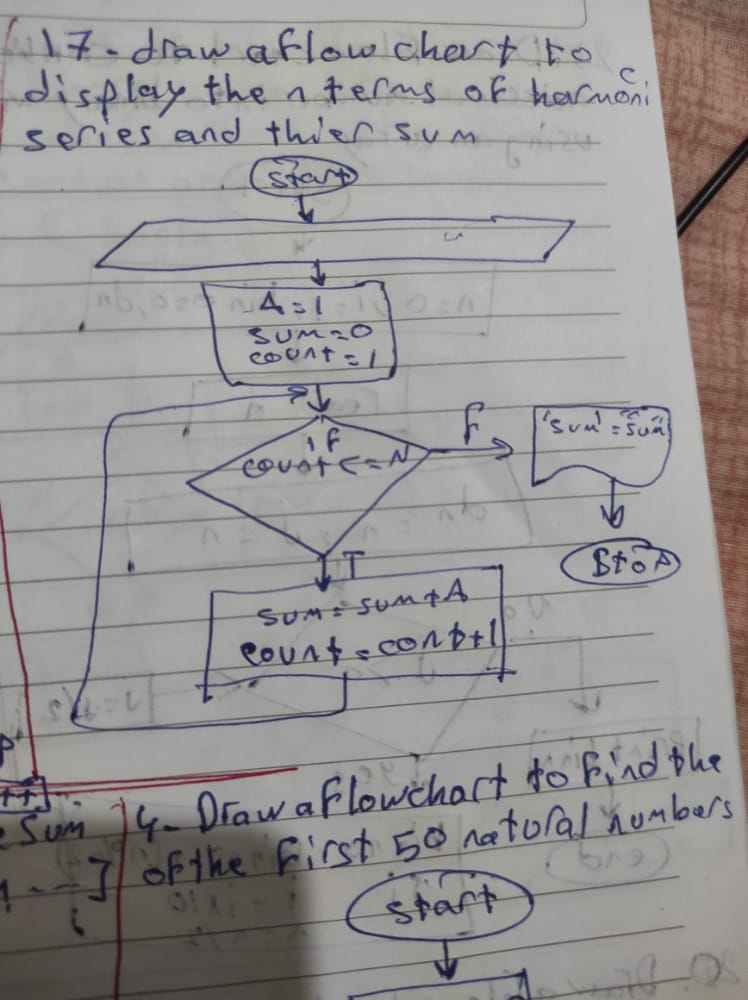 17- draw a flow chart to
display the n terms of harmonic
series and thier sum
start
A=1
sum=0
count=1
if
count <= N
F
'sum' = sum
Stop
T
sum = sum + A
count = cont+1
4- Draw a flowchart to find the
of the first 50 natural numbers
start
++
sum